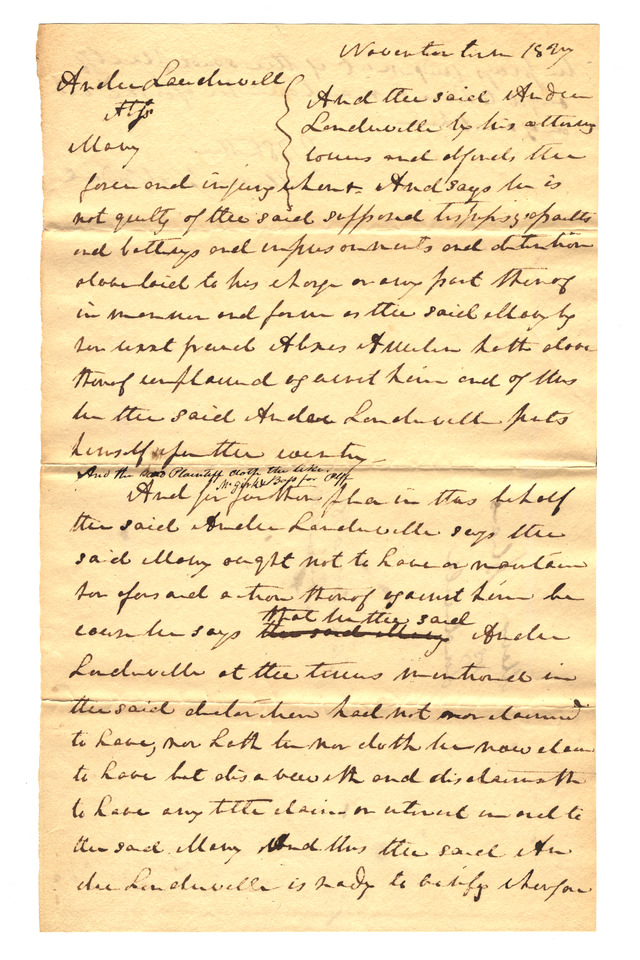 November term 1827
Andre Landreville
Ats
Mary
And the said Andre
Landreville by his attorney
comes and defends the
force and injury when &. And says he is
not guilty of the said supposed trespass assaults
and batterys and imprisonments and detention
above laid to his charge or any part thereof
in manner and form as the said Mary by
her next friend hath above
thereof complained against him and of this
he the said Andre Landreville puts
himself upon the country
And the said Plaintiff doth the like.
for Plff
And for further plea in this behalf
the said Andre Landreville says the
said Mary ought not to have or maintain
her aforesaid action thereof against him be
cause he says the said Mary that he the said Andre
Landreville at the times mentioned in
the said declaration had not nor claimed
to have, nor hath he nor doth he now claim
to have but disavoweth and disclaimeth
to have any title claim or interest in and to
the said Mary And this the said An
dre Landreville is ready to verify wherefore